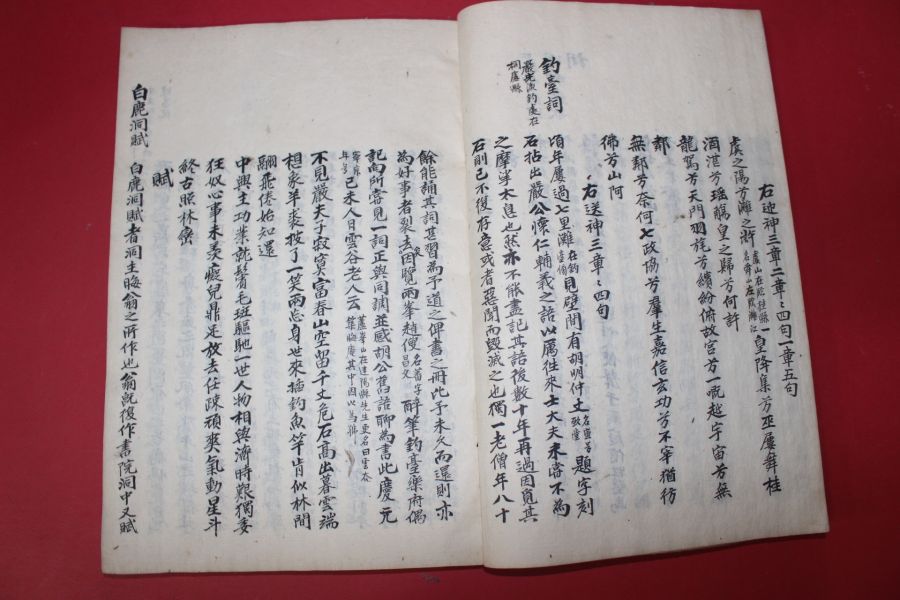 右迎神三章二章〻四句一章五句
虞之陽兮灕之滸一皇降集兮巫屢舞桂
酒湛兮瑶觴皇之歸兮何許
龍駕兮天門羽旄兮繽紛俯故宫兮一慨越宇宙兮無
鄰
無鄰兮奈何七政協兮羣生嘉信玄功兮不宰猶彷
彿兮山阿
右送神三章〻四句
釣臺詞
嚴先生釣處在
桐廬縣
頃年屢過七里灘見壁間有胡明仲丈題字刻
石拈出嚴公懷仁輔義之語以厲徃來士大夫未嘗不為
之摩挲太息也然亦不能盡記其語後數十年再過因覓其
石則已不復存意或者惡聞而毁滅之也獨一老僧年八十
餘能誦其詞甚習為予道之俾書之冊此予未久而還則亦
為好事者裂去因覽兩峯趙傁醉筆釣臺樂府偶
記向所嘗見一詞正與同調並感胡公舊語聊為書此慶元
己未人日雲谷老人云
不見嚴夫子寂寞富春山空留千丈危石高出暮雲端
想象羊裘披了一笑兩忘身世來插釣魚竿肯似林間
翮飛倦始知還
中興主功業就鬢毛斑驅馳一世人物相與濟時艱獨委
狂奴心事未羡癡兒鼎足放去任疎頑爽氣動星斗
終古照林巒
賦
白鹿洞賦
白鹿洞賦者洞主晦翁之所作也翁既復作書院洞中又賦